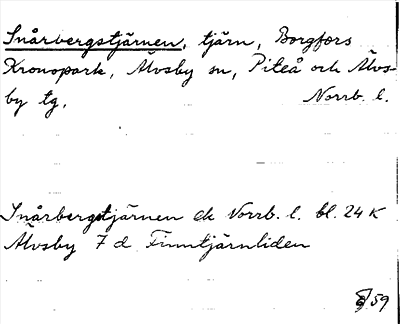 Snårbergstjärnen, tjärn, Borgfors
Kronopark, Älvsby sn, Piteå och Älvs-
by tg. Norrb. l.
Snårbergstjärnen ek Norrb. l. bl. 24 K
Älvsby 7 d Finntjärnliden
59